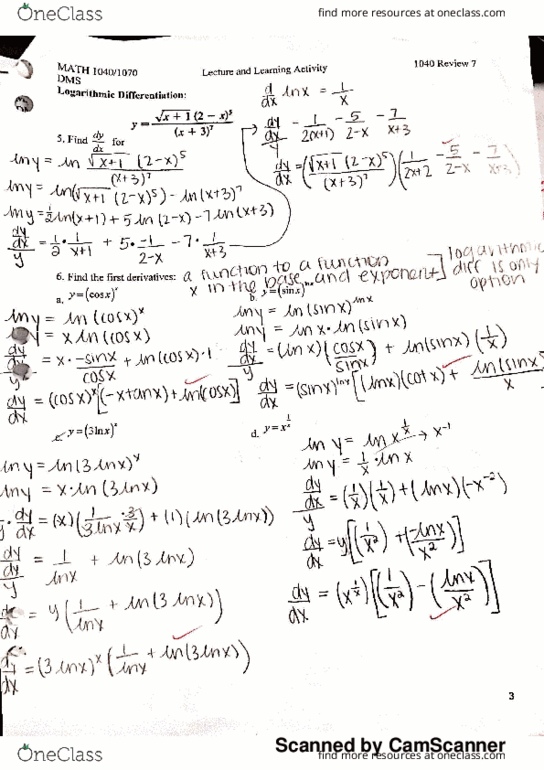 OneClass
find more resources at oneclass.com
MATH 1040/1070
DMS
Lecture and Learning Activity
1040 Review 7
Logarithmic Differentiation:
d/dx lnx = 1/x
5. Find dy/dx for y = √(x+1) (2-x)⁵ / (x+3)⁷
lny = ln √(x+1) (2-x)⁵ / (x+3)⁷
lny = ln(√(x+1) (2-x)⁵) - ln(x+3)⁷
lny = ½ ln(x+1) + 5 ln(2-x) - 7 ln(x+3)
dy/dx / y = 1/2 · 1/(x+1) + 5 · -1/(2-x) - 7 · 1/(x+3)
dy/dx / y = 1/(2(x+1)) - 5/(2-x) - 7/(x+3)
dy/dx = (√(x+1) (2-x)⁵ / (x+3)⁷)(1/(2x+2) - 5/(2-x) - 7/(x+3))
6. Find the first derivatives: a function to a function
x in the base and exponent] logarithmic diff is only option
a. y=(cosx)ˣ
lny = ln(cosx)ˣ
lny = x ln(cosx)
dy/dx / y = x · -sinx/cosx + ln(cosx) · 1
dy/dx = (cosx)ˣ[-xtanx) + ln(cosx)]
b. y=(sinx)^lnx
lny = ln(sinx)^lnx
lny = lnx · ln(sinx)
dy/dx / y = (lnx)(cosx/sinx) + ln(sinx)(1/x)
dy/dx = (sinx)^lnx [(lnx)(cotx) + ln(sinx)/x
c. y=(3lnx)ˣ
lny = ln(3lnx)ˣ
lny = x · ln(3lnx)
dy/dx = (x)(1/3lnx · 3/x) + (1)(ln(3lnx))
dy/dx / y = 1/lnx + ln(3lnx)
dx = y(1/lnx + ln(3lnx))
dy/dx = (3lnx)ˣ(1/lnx + ln(3lnx))
d. y=x^(1/x)
lny = lnx^(1/x) → x⁻¹
lny = 1/x · lnx
dy/dx / y = (1/x)(1/x) + (lnx)(-x⁻²)
dy/dx = y[(1/x²) + (-lnx/x²)]
dy/dx = (x^(1/x))[(1/x²) - (lnx/x²)]
3
Scanned by CamScanner
OneClass
find more resources at oneclass.com